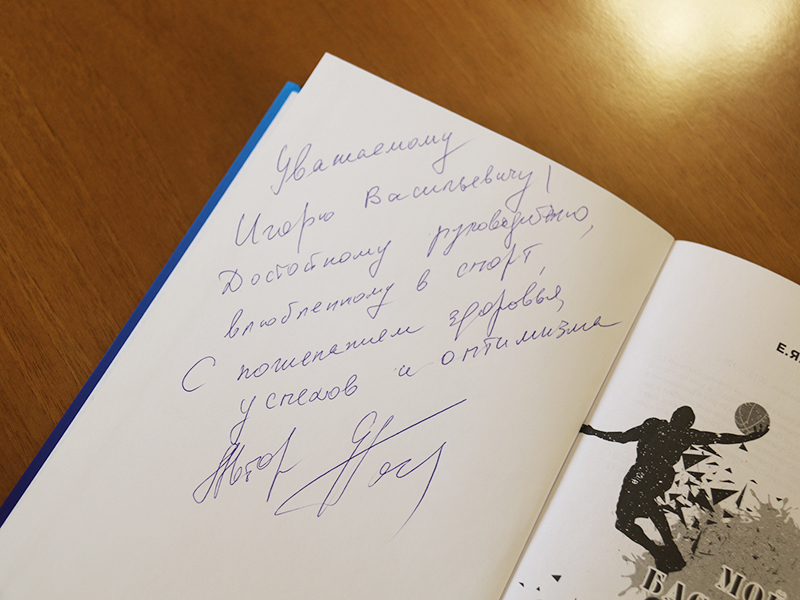 Уважаемому
Игорю Васильевичу!
Достойному руководителю,
влюбленному в спорт,
С пожеланием здоровья,
успехов и оптимизма
Автор
Е.Я
МОЙ
БАС